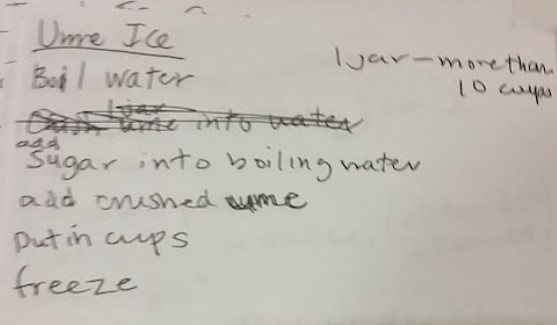 Ume Ice
1 jar - more than
10 cups
Boil water
1 jar
Crush ume into water
add
Sugar into boiling water
add crushed ume
Put in cups
freeze